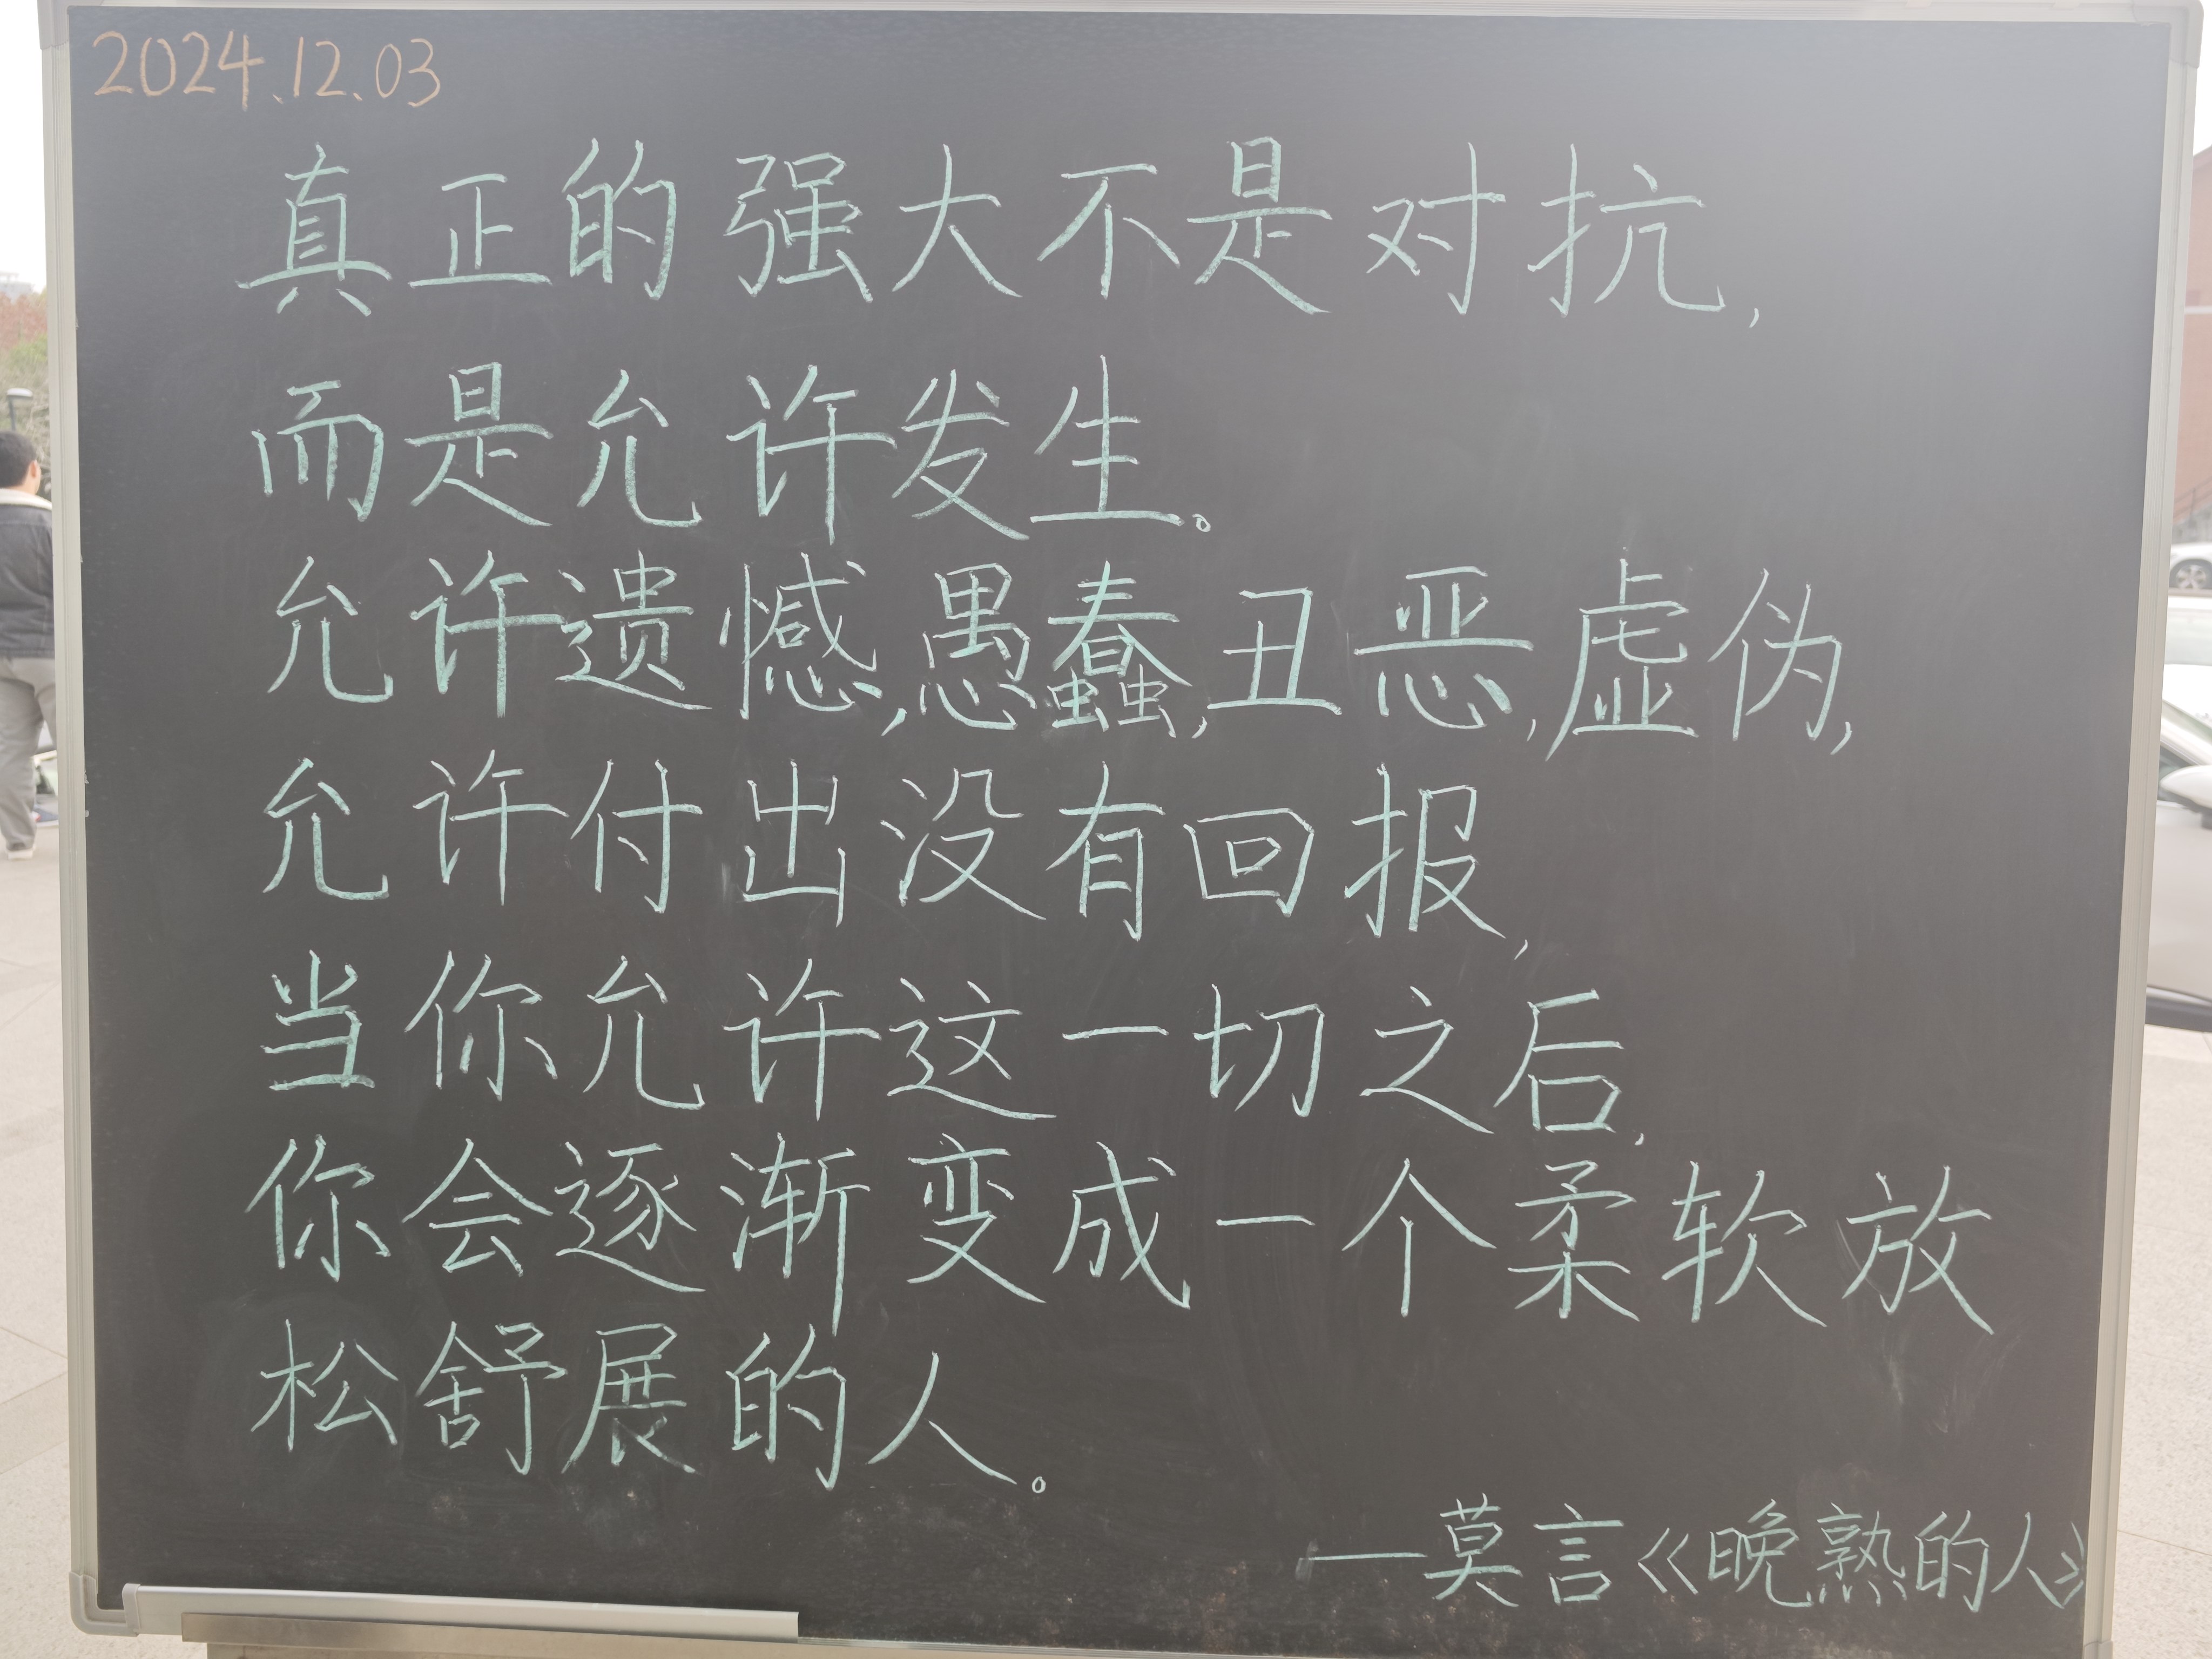 2024.12.03
真正的强大不是对抗,
而是允许发生。
允许遗憾,愚蠢,丑恶,虚伪,
允许付出没有回报,
当你允许这一切之后,
你会逐渐变成一个柔软放
松舒展的人。
——莫言《晚熟的人》